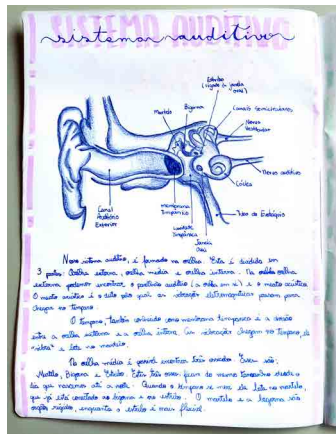 SISTEMA AUDITIVO
sistema auditivo
Estribo
(ligado à janela
oval)
Bigorna
Martelo
Canais Semicirculares
Nervo
Vestibular
Nervo auditivo
Cóclea
Tuba de Eustáquio
Canal
Auditivo
Exterior
membrana
timpânica
Cavidade
Timpânica
Janela
Oval
Nosso sistema auditivo, é formado na orelha. Esta é dividida em
3 partes: Orelha externa, orelha média e orelha interna. Na orelha
externa podemos encontrar o pavilhão auditivo (a orelha em si) e o meato auditivo.
O meato acústico é o duto pelo qual as vibrações eletromagnéticas passam para
chegar no tímpano.
O tímpano, também conhecido como membrana timpânica é a divisão
entre a orelha externa e a orelha interna. As vibrações chegam no tímpano, ele
"vibra" e bate no martelo.
Na orelha média é possível encontrar três ossinhos. Esses são:
Martelo, Bigorna e Estribo. Estes três ossos ficam do mesmo tamanho desde o
dia que nascemos até a morte. Quando o tímpano se mexe ele bate no martelo,
que já está conectado na bigorna e no estribo. O martelo e a bigorna são
ossos rígidos, enquanto o estribo é mais flexível.